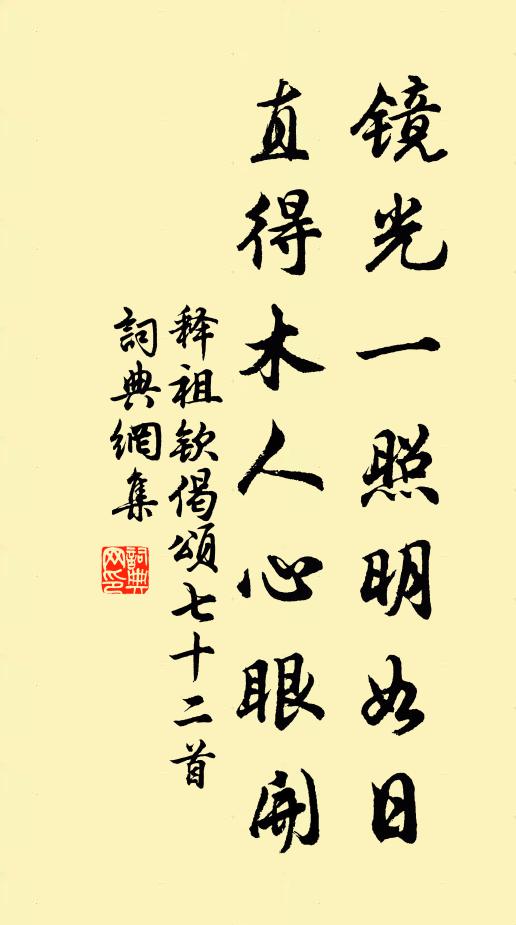 镜光一照明如日
直得木人心眼开
释祖钦偈颂七十二首
詞典網集
詞典
网印